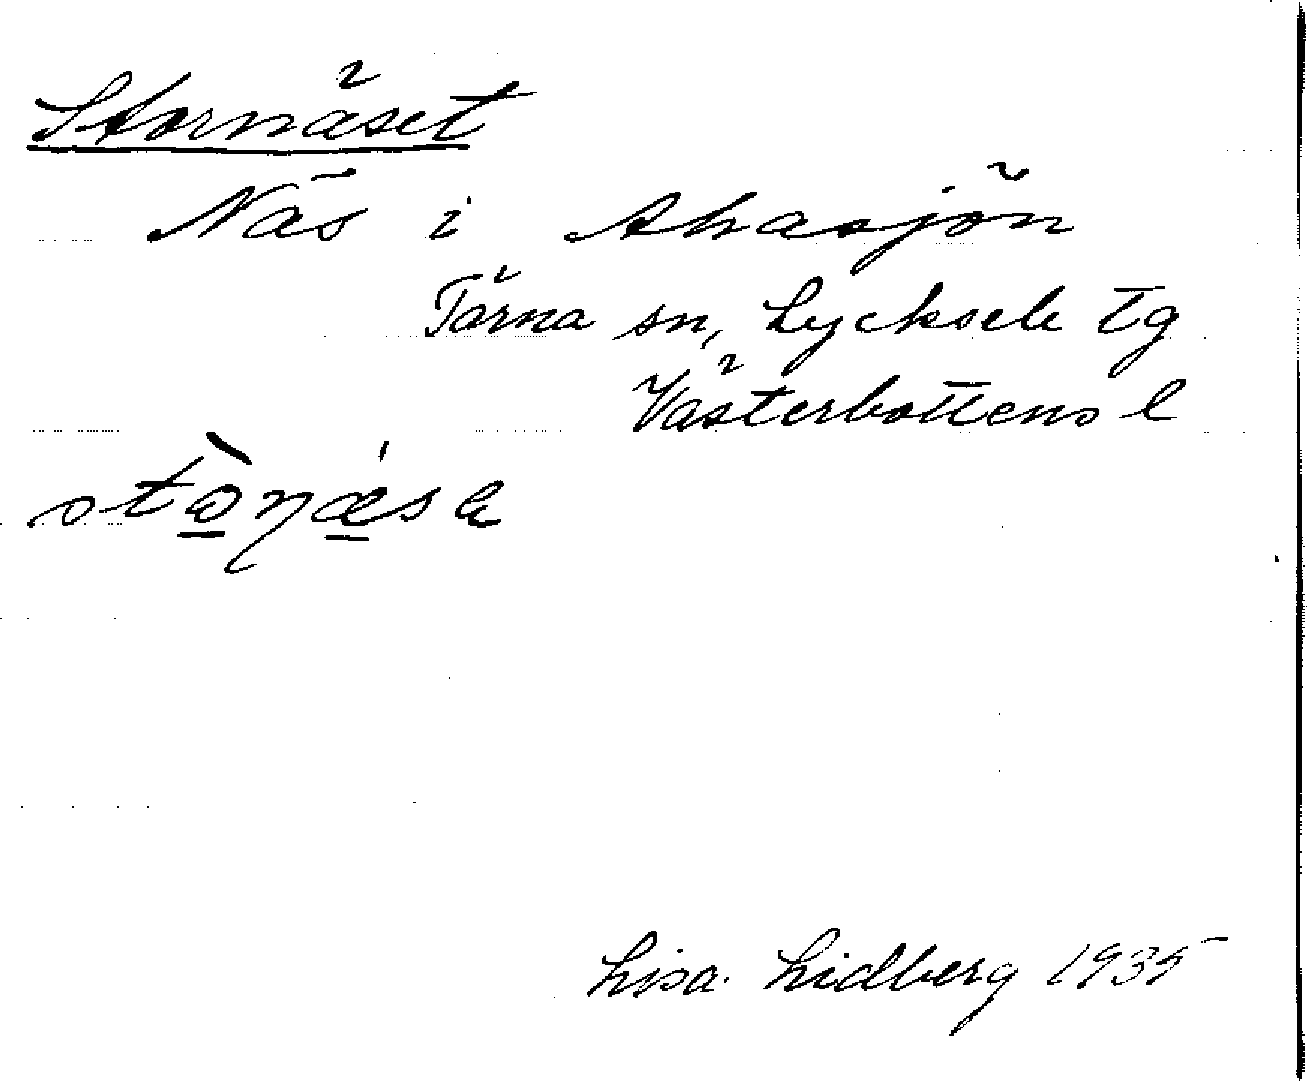 Stornäset
Näs i Ahasjön
Tärna sn, Lycksele tg
Västerbottens l
Lisa Lidberg 1935